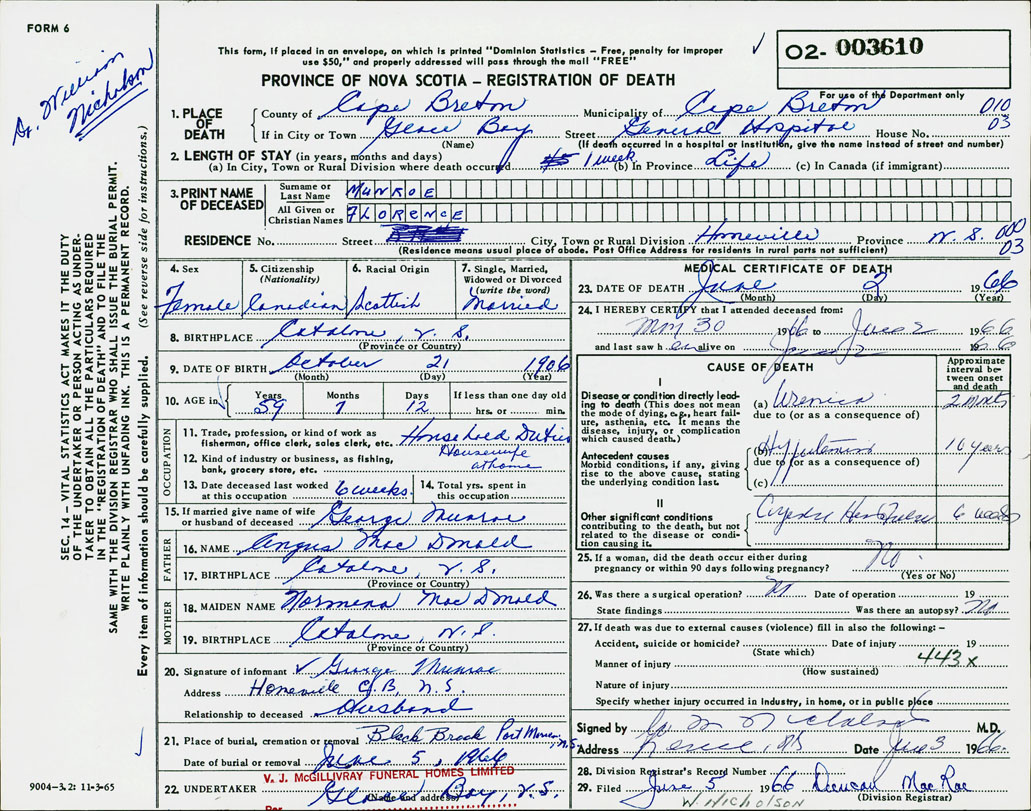 FORM 6
Dr. William Nicholson
This form, if placed in an envelope, on which is printed "Dominion Statistics – Free, penalty for improper
use $50," and properly addressed will pass through the mail "FREE"
PROVINCE OF NOVA SCOTIA – REGISTRATION OF DEATH
02- 003610
For use of the Department only
010
03
1. PLACE OF DEATH
County of Cape Breton Municipality of Cape Breton
If in City or Town Glace Bay Street General Hospital House No.
(Name) (If death occurred in a hospital or institution, give the name instead of street and number)
2. LENGTH OF STAY (in years, months and days)
(a) In City, Town or Rural Division where death occurred 1 week (b) In Province Life (c) In Canada (if immigrant)
3. PRINT NAME OF DECEASED
Surname or Last Name MUNROE
All Given or Christian Names FLORENCE
RESIDENCE No. Street City, Town or Rural Division Homeville Province N. S. 000
03
(Residence means usual place of abode. Post Office Address for residents in rural parts not sufficient)
4. Sex Female
5. Citizenship (Nationality) Canadian
6. Racial Origin Scottish
7. Single, Married, Widowed or Divorced (write the word) Married
8. BIRTHPLACE Catalone, N. S.
(Province or Country)
9. DATE OF BIRTH October 21 1906
(Month) (Day) (Year)
10. AGE in Years 59 Months 7 Days 12 If less than one day old hrs. or min.
OCCUPATION
11. Trade, profession, or kind of work as
fisherman, office clerk, sales clerk, etc. Household Duties
12. Kind of industry or business, as fishing,
bank, grocery store, etc. Housewife at home
13. Date deceased last worked at this occupation 6 weeks
14. Total yrs. spent in this occupation
15. If married give name of wife or husband of deceased George Munroe
FATHER
16. NAME Angus Mac Donald
17. BIRTHPLACE Catalone, N. S.
(Province or Country)
MOTHER
18. MAIDEN NAME Normena Mac Donald
19. BIRTHPLACE Catalone, N. S.
(Province or Country)
20. Signature of informant George Munroe
Address Homeville C.B, N. S.
Relationship to deceased Husband
21. Place of burial, cremation or removal Black Brook Port Morien, N.S.
Date of burial or removal June 5, 1966
V. J. McGILLIVRAY FUNERAL HOMES LIMITED
22. UNDERTAKER Glace Bay, N. S.
(Name and address)
Per
MEDICAL CERTIFICATE OF DEATH
23. DATE OF DEATH June 2 1966
(Month) (Day) (Year)
24. I HEREBY CERTIFY that I attended deceased from:
30 1966 to June 2 1966
and last saw her alive on June 2 1966
CAUSE OF DEATH
Approximate interval between onset and death
I
Disease or condition directly leading to death (This does not mean
the mode of dying, e.g., heart failure, asthenia, etc. It means the
disease, injury, or complication
which caused death.)
(a) Uremia 2 months
due to (or as a consequence of)
Antecedent causes
Morbid conditions, if any, giving
rise to the above cause, stating
the underlying condition last.
(b) Hypertension 10 years
due to (or as a consequence of)
(c)
II
Other significant conditions
contributing to the death, but not
related to the disease or condition causing it.
6 weeks
25. If a woman, did the death occur either during
pregnancy or within 90 days following pregnancy? No
(Yes or No)
26. Was there a surgical operation? No Date of operation 19
State findings Was there an autopsy? No
27. If death was due to external causes (violence) fill in also the following: –
Accident, suicide or homicide? Date of injury 19
(State which) 443x
Manner of injury
(How sustained)
Nature of injury
Specify whether injury occurred in Industry, in home, or in public place
Signed by Nicholson M.D.
Address Date June 3 1966
28. Division Registrar's Record Number
29. Filed June 5 1966 Duncan MacRae
W. NICHOLSON (Division Registrar)
SEC. 14 – VITAL STATISTICS ACT MAKES IT THE DUTY
OF THE UNDERTAKER OR PERSON ACTING AS UNDER-
TAKER TO OBTAIN ALL THE PARTICULARS REQUIRED
IN THE "REGISTRATION OF DEATH" AND TO FILE THE
SAME WITH THE DIVISION REGISTRAR WHO SHALL ISSUE THE BURIAL PERMIT.
WRITE PLAINLY WITH UNFADING INK. THIS IS A PERMANENT RECORD.
Every item of information should be carefully supplied. (See reverse side for instructions.)
9004–3.2: 11-3-65